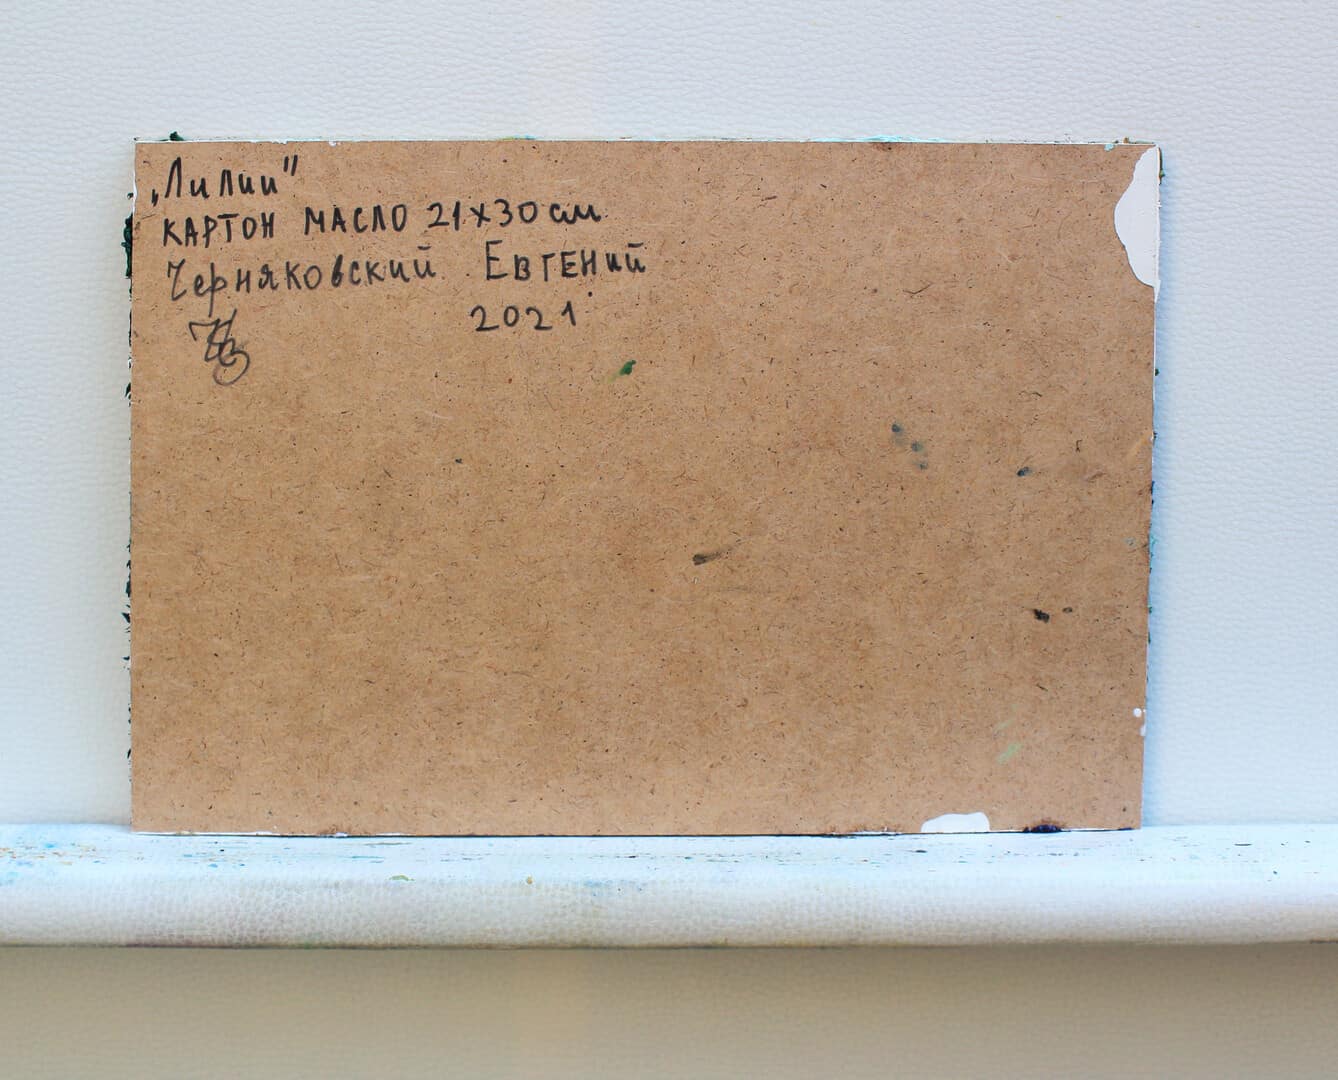 „Лилии"
КАРТОН МАСЛО 21х30 см
Черняковский Евгений
2021